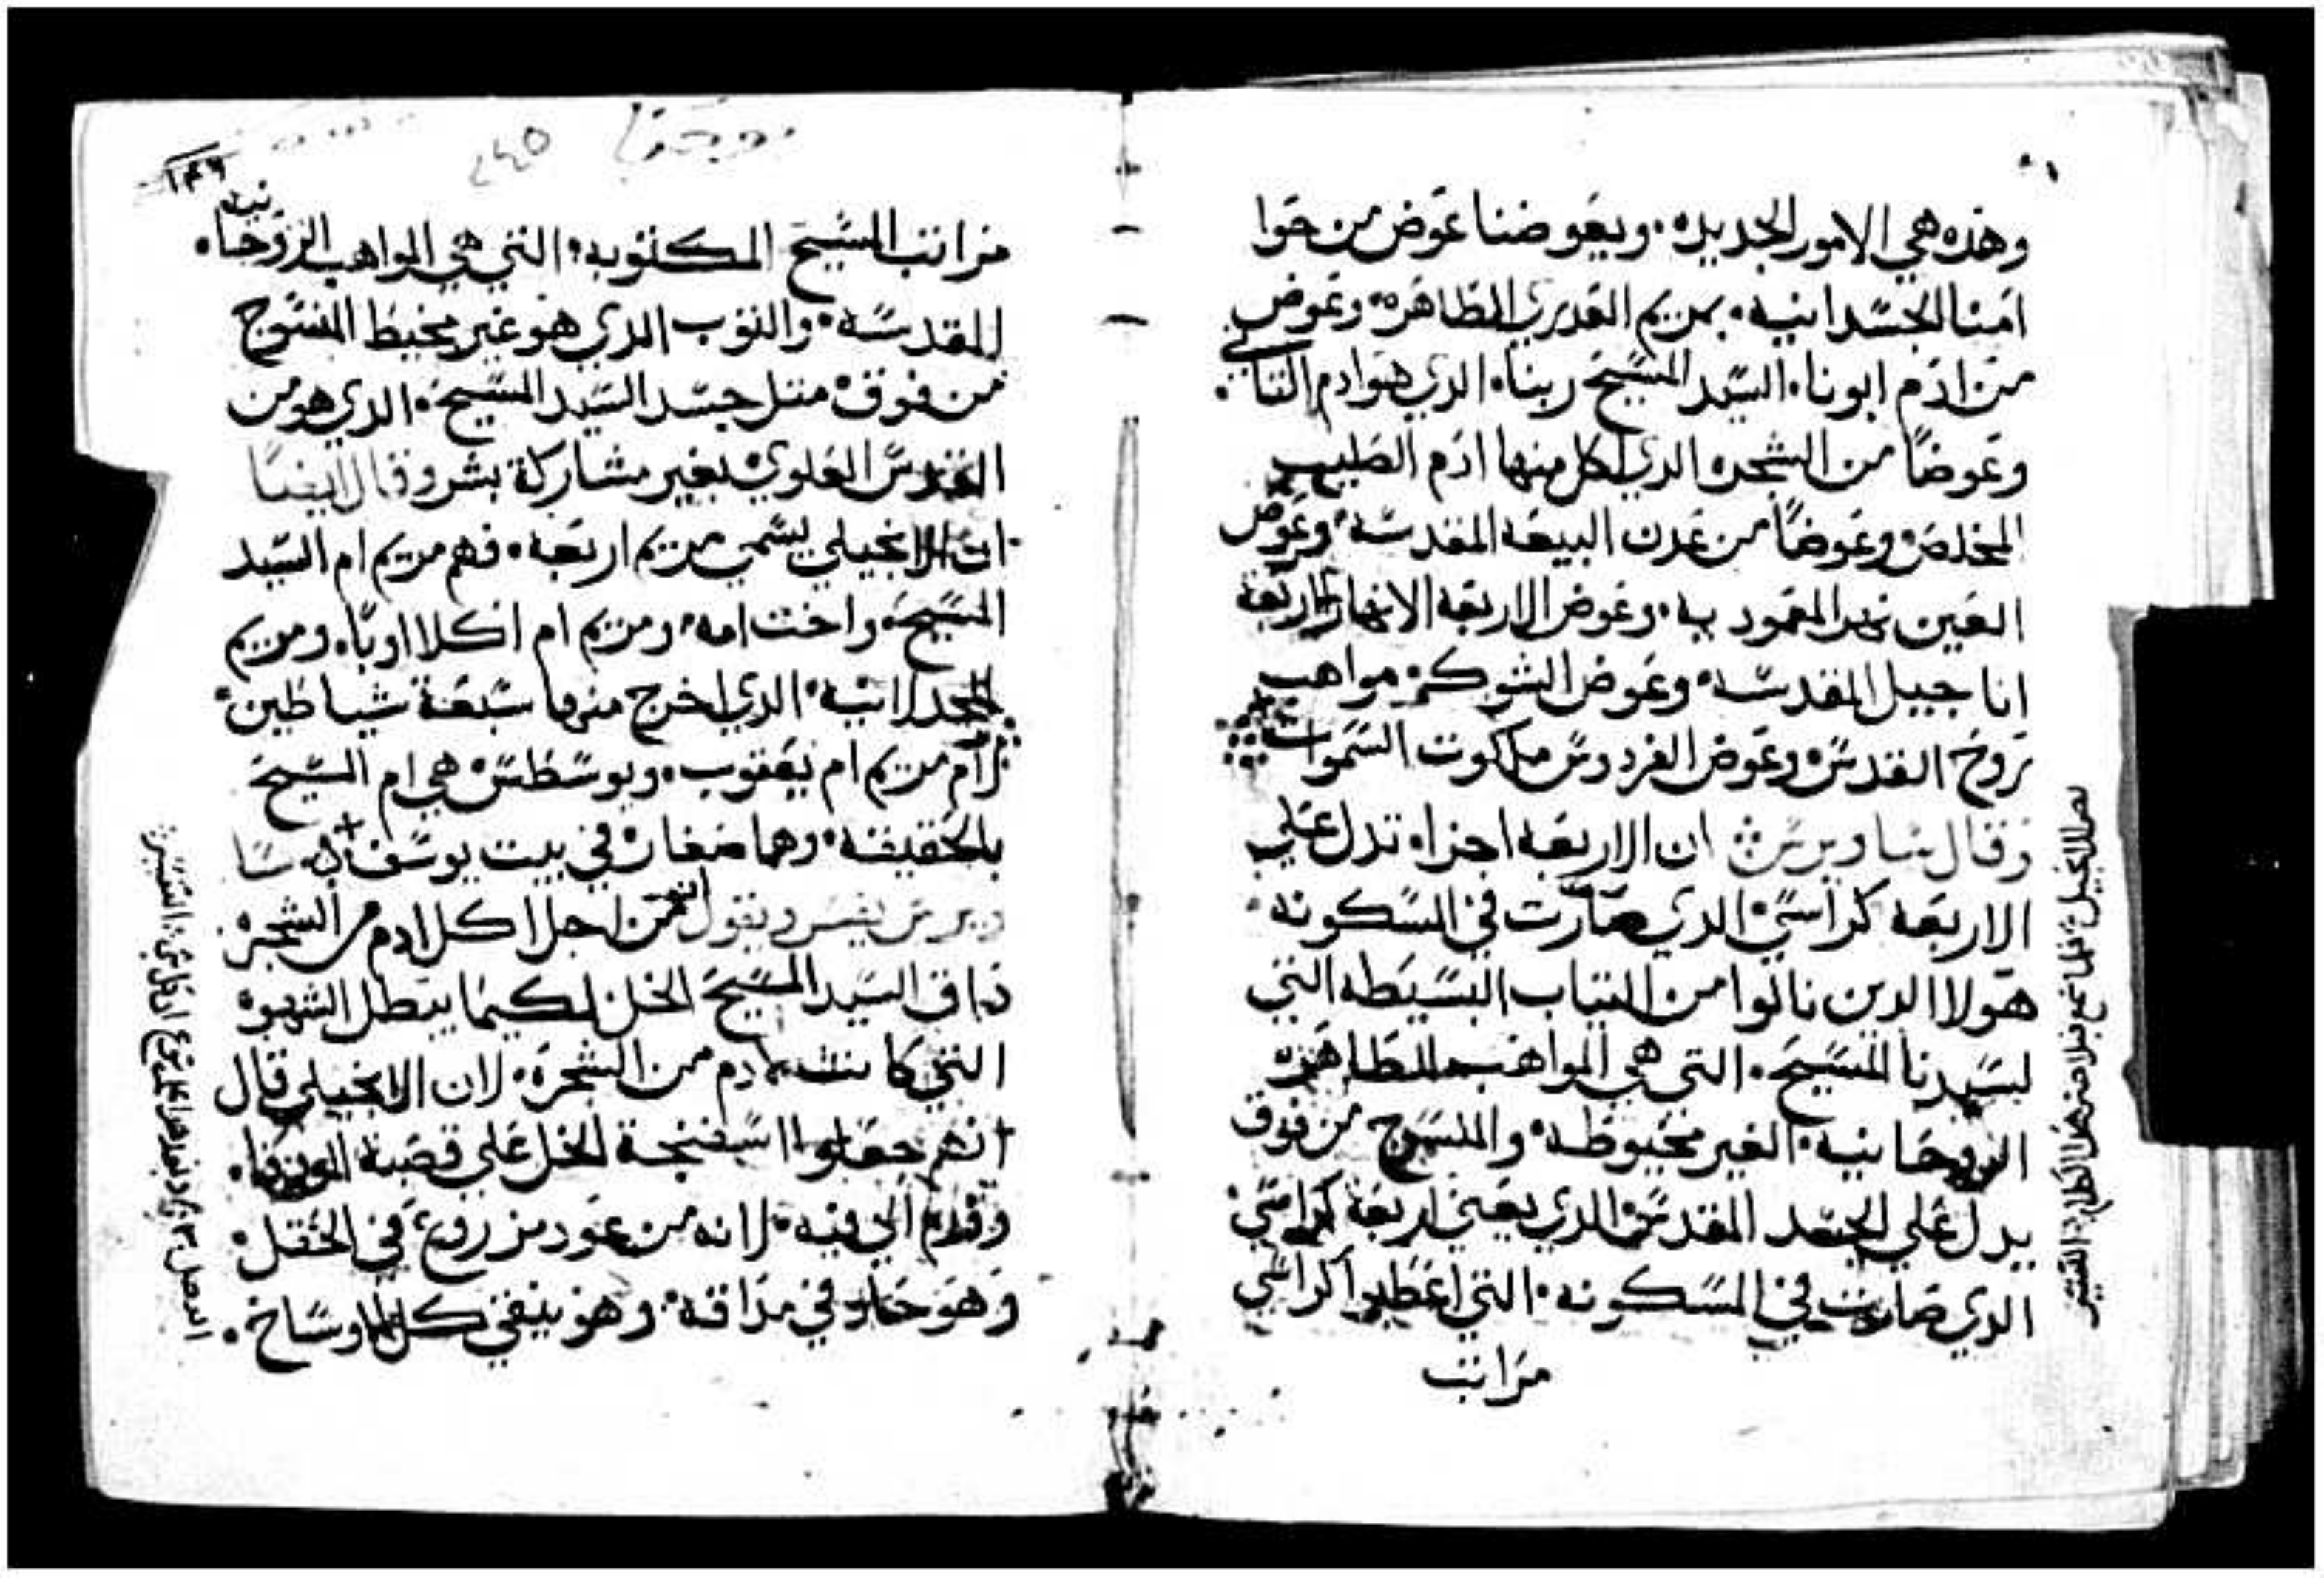 وهذه هي الامور الجديده. ويعوضنا عوض من حوا
امنا الجسدانيه. بمريم العدري الطاهره. وعوض
من ادم ابونا. السيد المسيح ربنا. الدي هو ادم التاني.
وعوضاً من الشجره الدي اكل منها ادم الصليب
المخلص وعوضاً من عدن البيعه المقدسه. وعوض
العين نهر المعموديه. وعوض الاربعه الانهار الاربعه
اناجيل المقدسه. وعوض الشوك مواهب
روح القدس وعوض الفردوس ملكوت السموات
وقال ساويرس ان الاربعه اجزاء تدل علي
الاربعه كراسي. الدي صارت في المسكونه.
هولا الدين نالوا من التياب البسيطه التي
لسيدنا المسيح. التي هي المواهب الطاهره
الروحانيه. الغير مخيوطه. والمنسوج من فوق
يدل علي الجسد المقدس الدي يعني اربعة كراسي
الدي صارت في المسكونه. التي اعطيوا كراسي
مراتب
١٤٦
مراتب المسيح المكتوبه. التي هي المواهب الروحانيه.
المقدسه. والتوب الدي هو غير مخيط المنسوج
من فوق. متل جسد السيد المسيح. الدي هو من
القدس العلوي بغير مشاركة بشر وقال ايضاً
ان الانجيلي يسمي مريم اربعه. فهم مريم ام السيد
المسيح. واخت امه. ومريم ام اكلااوبا. ومريم
المجدلانيه. الدي اخرج منها سبعة شياطين.
لان مريم ام يعقوب. ويوسطس هي ام المسيح
بالحقيقه. وهما صغار في بيت يوسف سا
ويرس يفسر ويقول من اجل اكل ادم من الشجره
داق السيد المسيح الخل لكيما يبطل الشهوه
التي كانت لادم من الشجره. لان الانجيلي قال
انهم جعلوا اسفنجة الخل علي قصبة الزوفا.
وقدم الي فيه. لانه من عود مزروع في الحقل
وهو حار في مداقه. وهو ينقي كل الاوساخ.